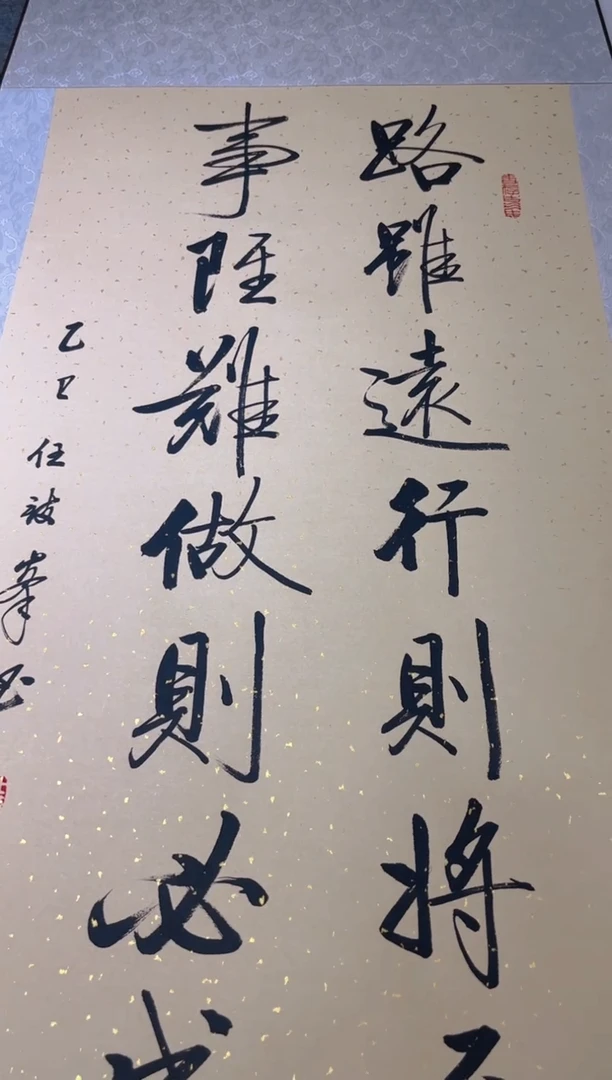 路雖遠行則將
事雖難做則必成
乙巳 任 峯 书